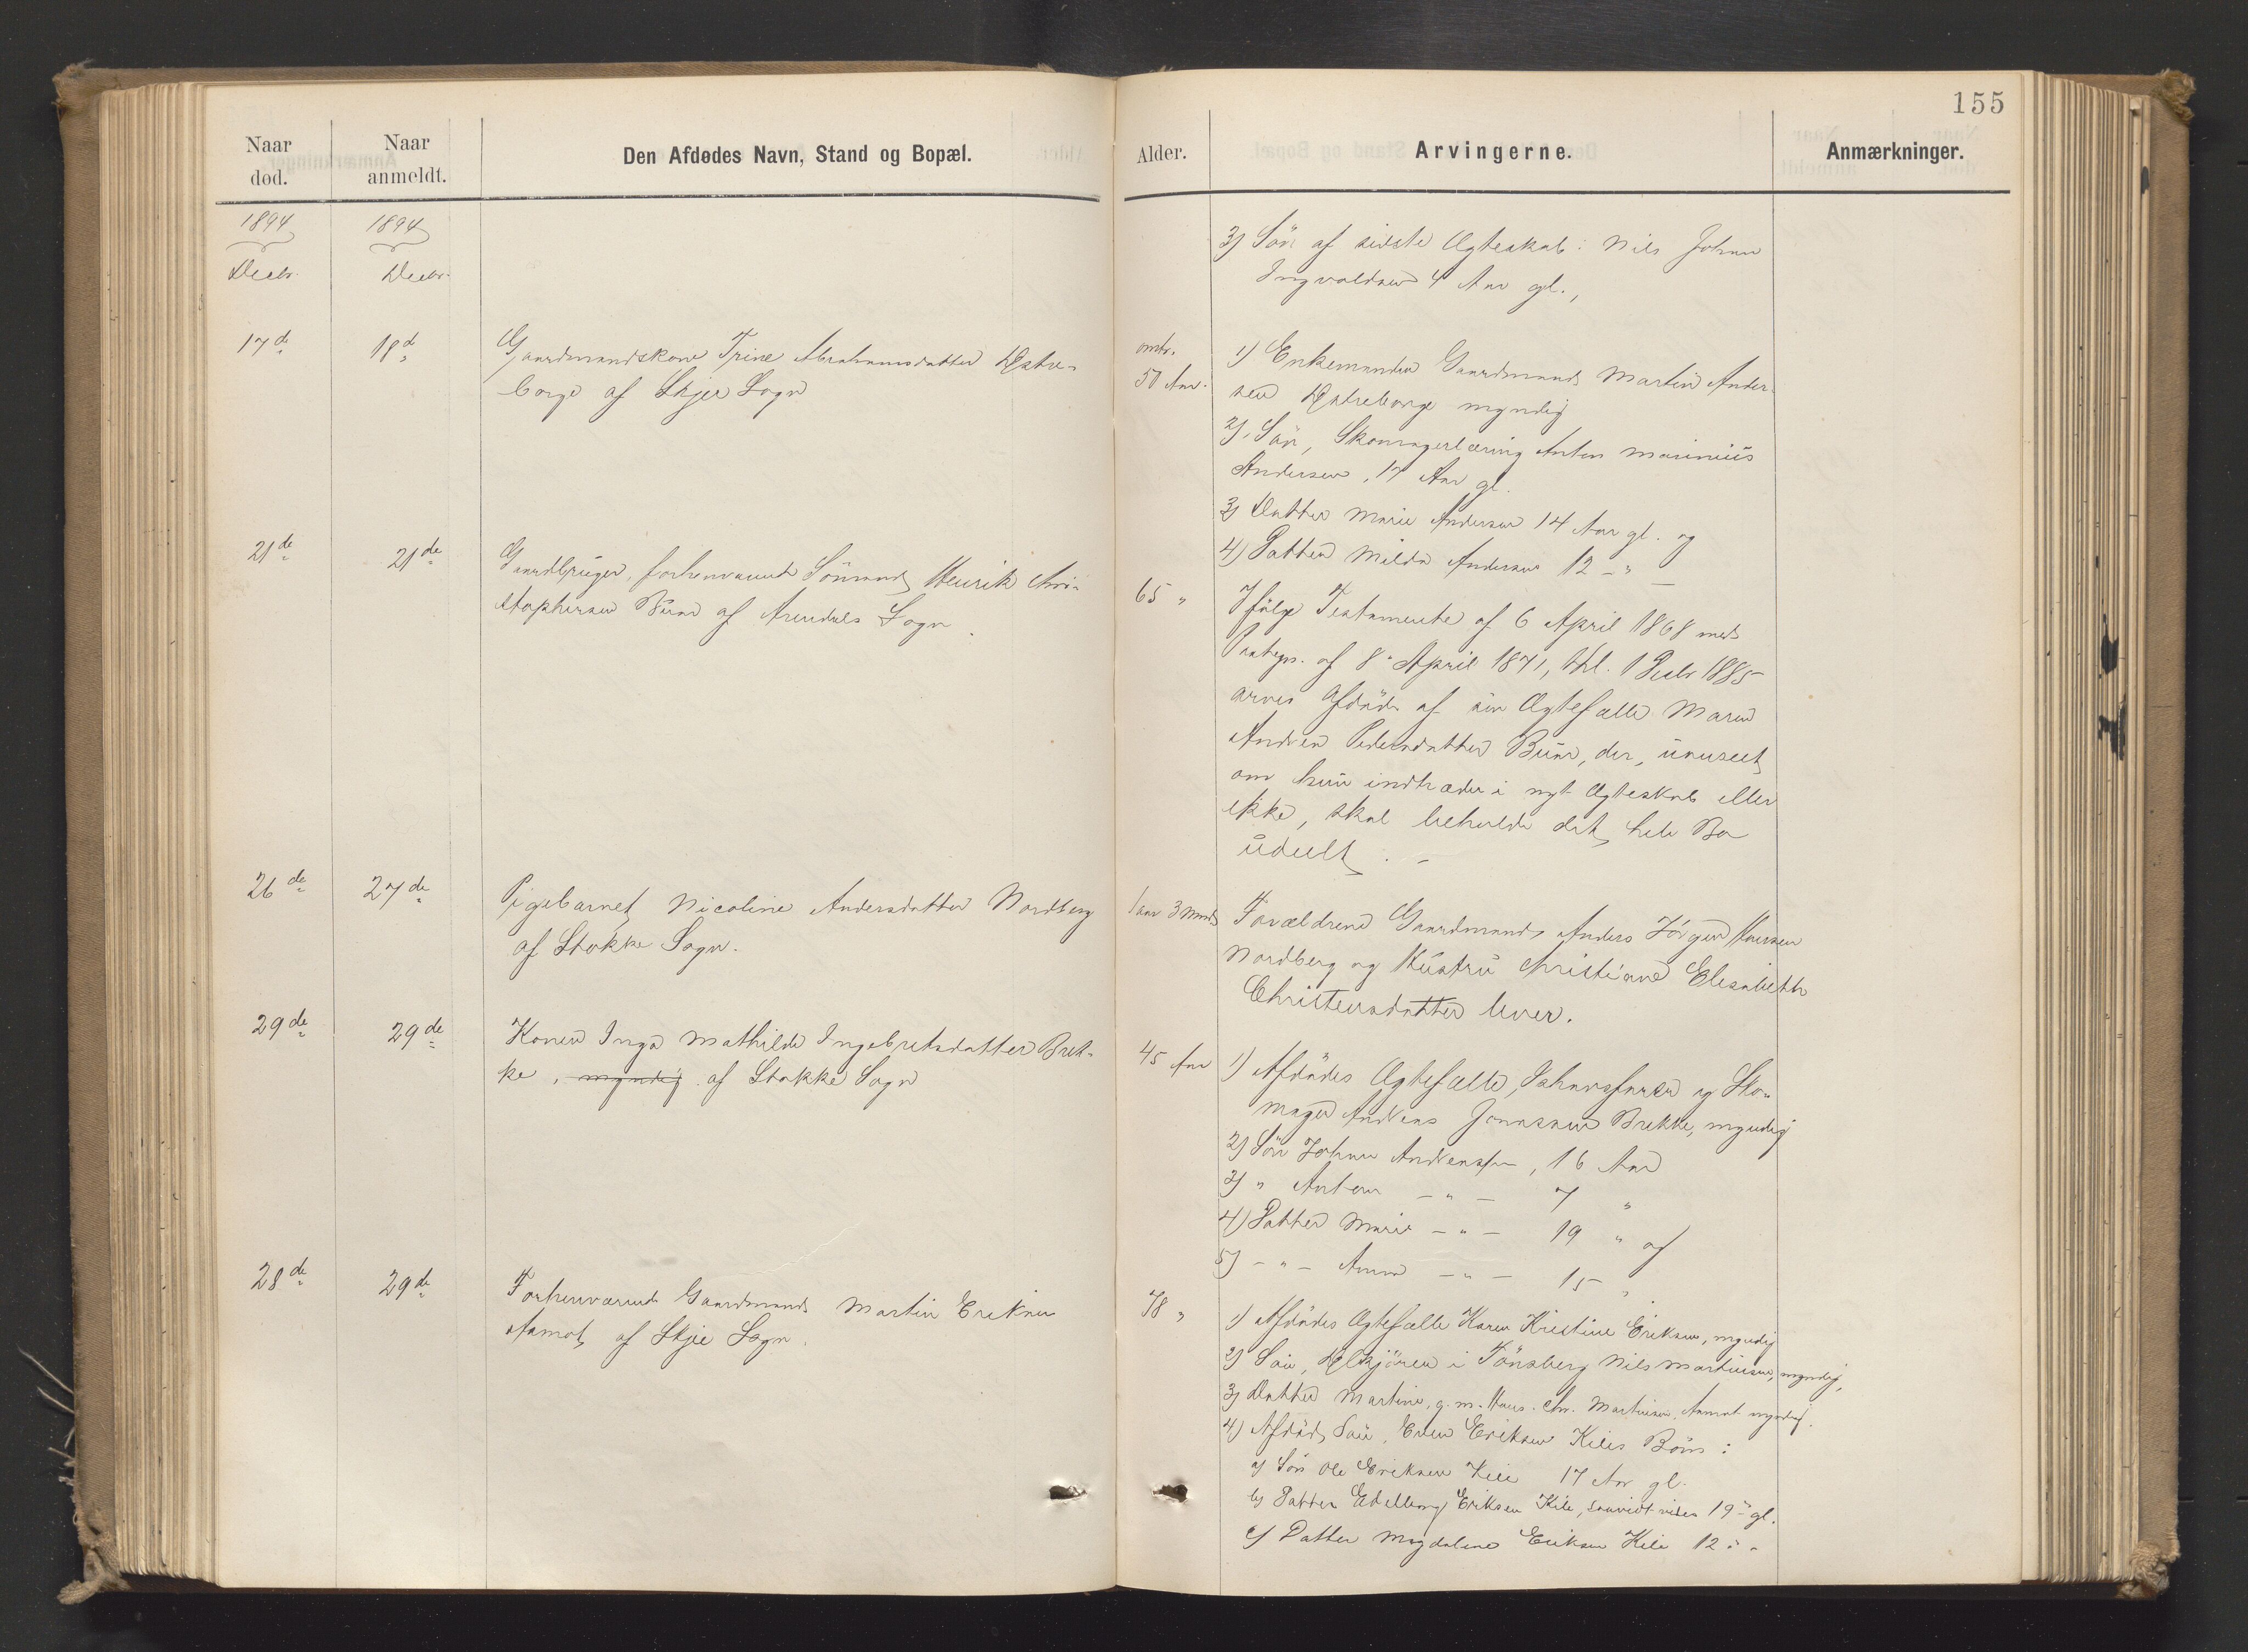 155
Naar død.
Naar anmeldt.
Den Afdødes Navn, Stand og Bopæl.
Alder.
Arvingerne.
Anmærkninger.
1894
1894
Decbr.
Decbr.
3) Sön af sidste Ægteskab: Nils Johan
Ingvaldsen 4 Aar gl.,
17de
18de
Gaardmandskone Trine Abrahamsdatter Østre-
borge af Skjee Sogn
omtr.
50 Aar.
1) Enkemanden Gaardmand Martin Ander-
sen Østreborge myndig
2) Sön, Skomagerlæring Anton Marinius
Andersen, 17 Aar gl.
3) Datter Marie Andersen 14 Aar gl. og
4) Datter Milda Andersen 12 - " -
21de
21de
Gaardbruger, forhenværende Sömand Henrik Chri-
stophersen Buer af Arendals Sogn.
65 "
Ifölge Testamente af 6 April 1868 med
Paategn. af 8. April 1871, thl. 1 Decbr 1885
arves Afdöde af sin Ægtefælle Maren
Andrea Pedersdatter Buer, der, uanseet
om hun indtræder i nyt Ægteskab eller
ikke, skal beholde det hele Bo
udeelt. -
26de
27de
Pigebarnet Nicoline Andersdatter Nordberg
af Stokke Sogn.
1 aar 3 Mnd
Forældrene Gaardmand Anders Jörgen Hansen
Nordberg og Hustru Christiane Elisabeth
Christensdatter lever.
29de
29de
Konen Inga Mathilde Ingebretsdatter Brek-
ke, myndig af Stokke Sogn
45 Aar
1) Afdödes Ægtefælle, og Sko-
mager Andreas Jonassen Brekke, myndig
2) Sön Johan Andreassen, 16 Aar
3) " Anton - " - 7 "
4) Datter Marie - " - 19 " og
5) - " - Anna - " - 15 " .
28de
29de
Forhenværende Gaardmand Martin Eriksen
Aamot af Skjee Sogn.
78 "
1) Afdödes Ægtefælle Karen Kristine Eriksen, myndig
2) Sön, i Tönsberg Nils Martinsen, myndig,
3) Datter Martine, g. m. Hans Chr. Martinsen, Aamot myndig.
4) Afdöd Sön, Even Eriksen Kiles Börn:
a) Sön Ole Eriksen Kile 17 Aar gl.
b) Datter Edelborg Eriksen Kile, saavidt vides 19 " gl.
c) Datter Magdalene Eriksen Kile 12 " "